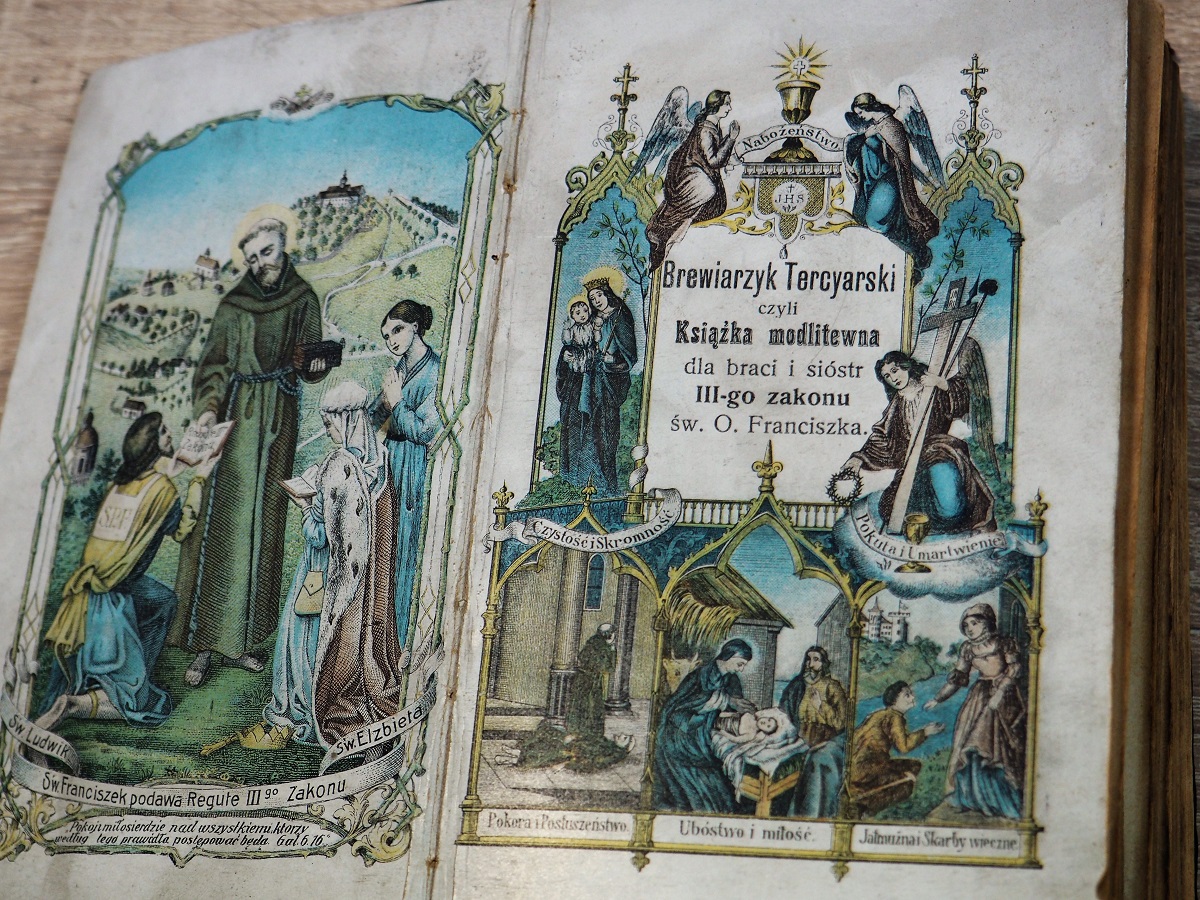 SPF
Św. Ludwik
Św. Elżbieta
Św. Franciszek podawa Regułę III go Zakonu
Pokój i miłosierdzie nad wszystkiemi, którzy
według tego prawidła postępować będą. Gal. 6. 16
Nabożeństwo
JHS
Brewiarzyk Tercyarski
czyli
Książka modlitewna
dla braci i sióstr
III-go zakonu
św. O. Franciszka.
Czystość i Skromność
Pokuta i Umartwienie
Pokora i Posłuszeństwo.
Ubóstwo i miłość.
Jałmużna i Skarby wieczne